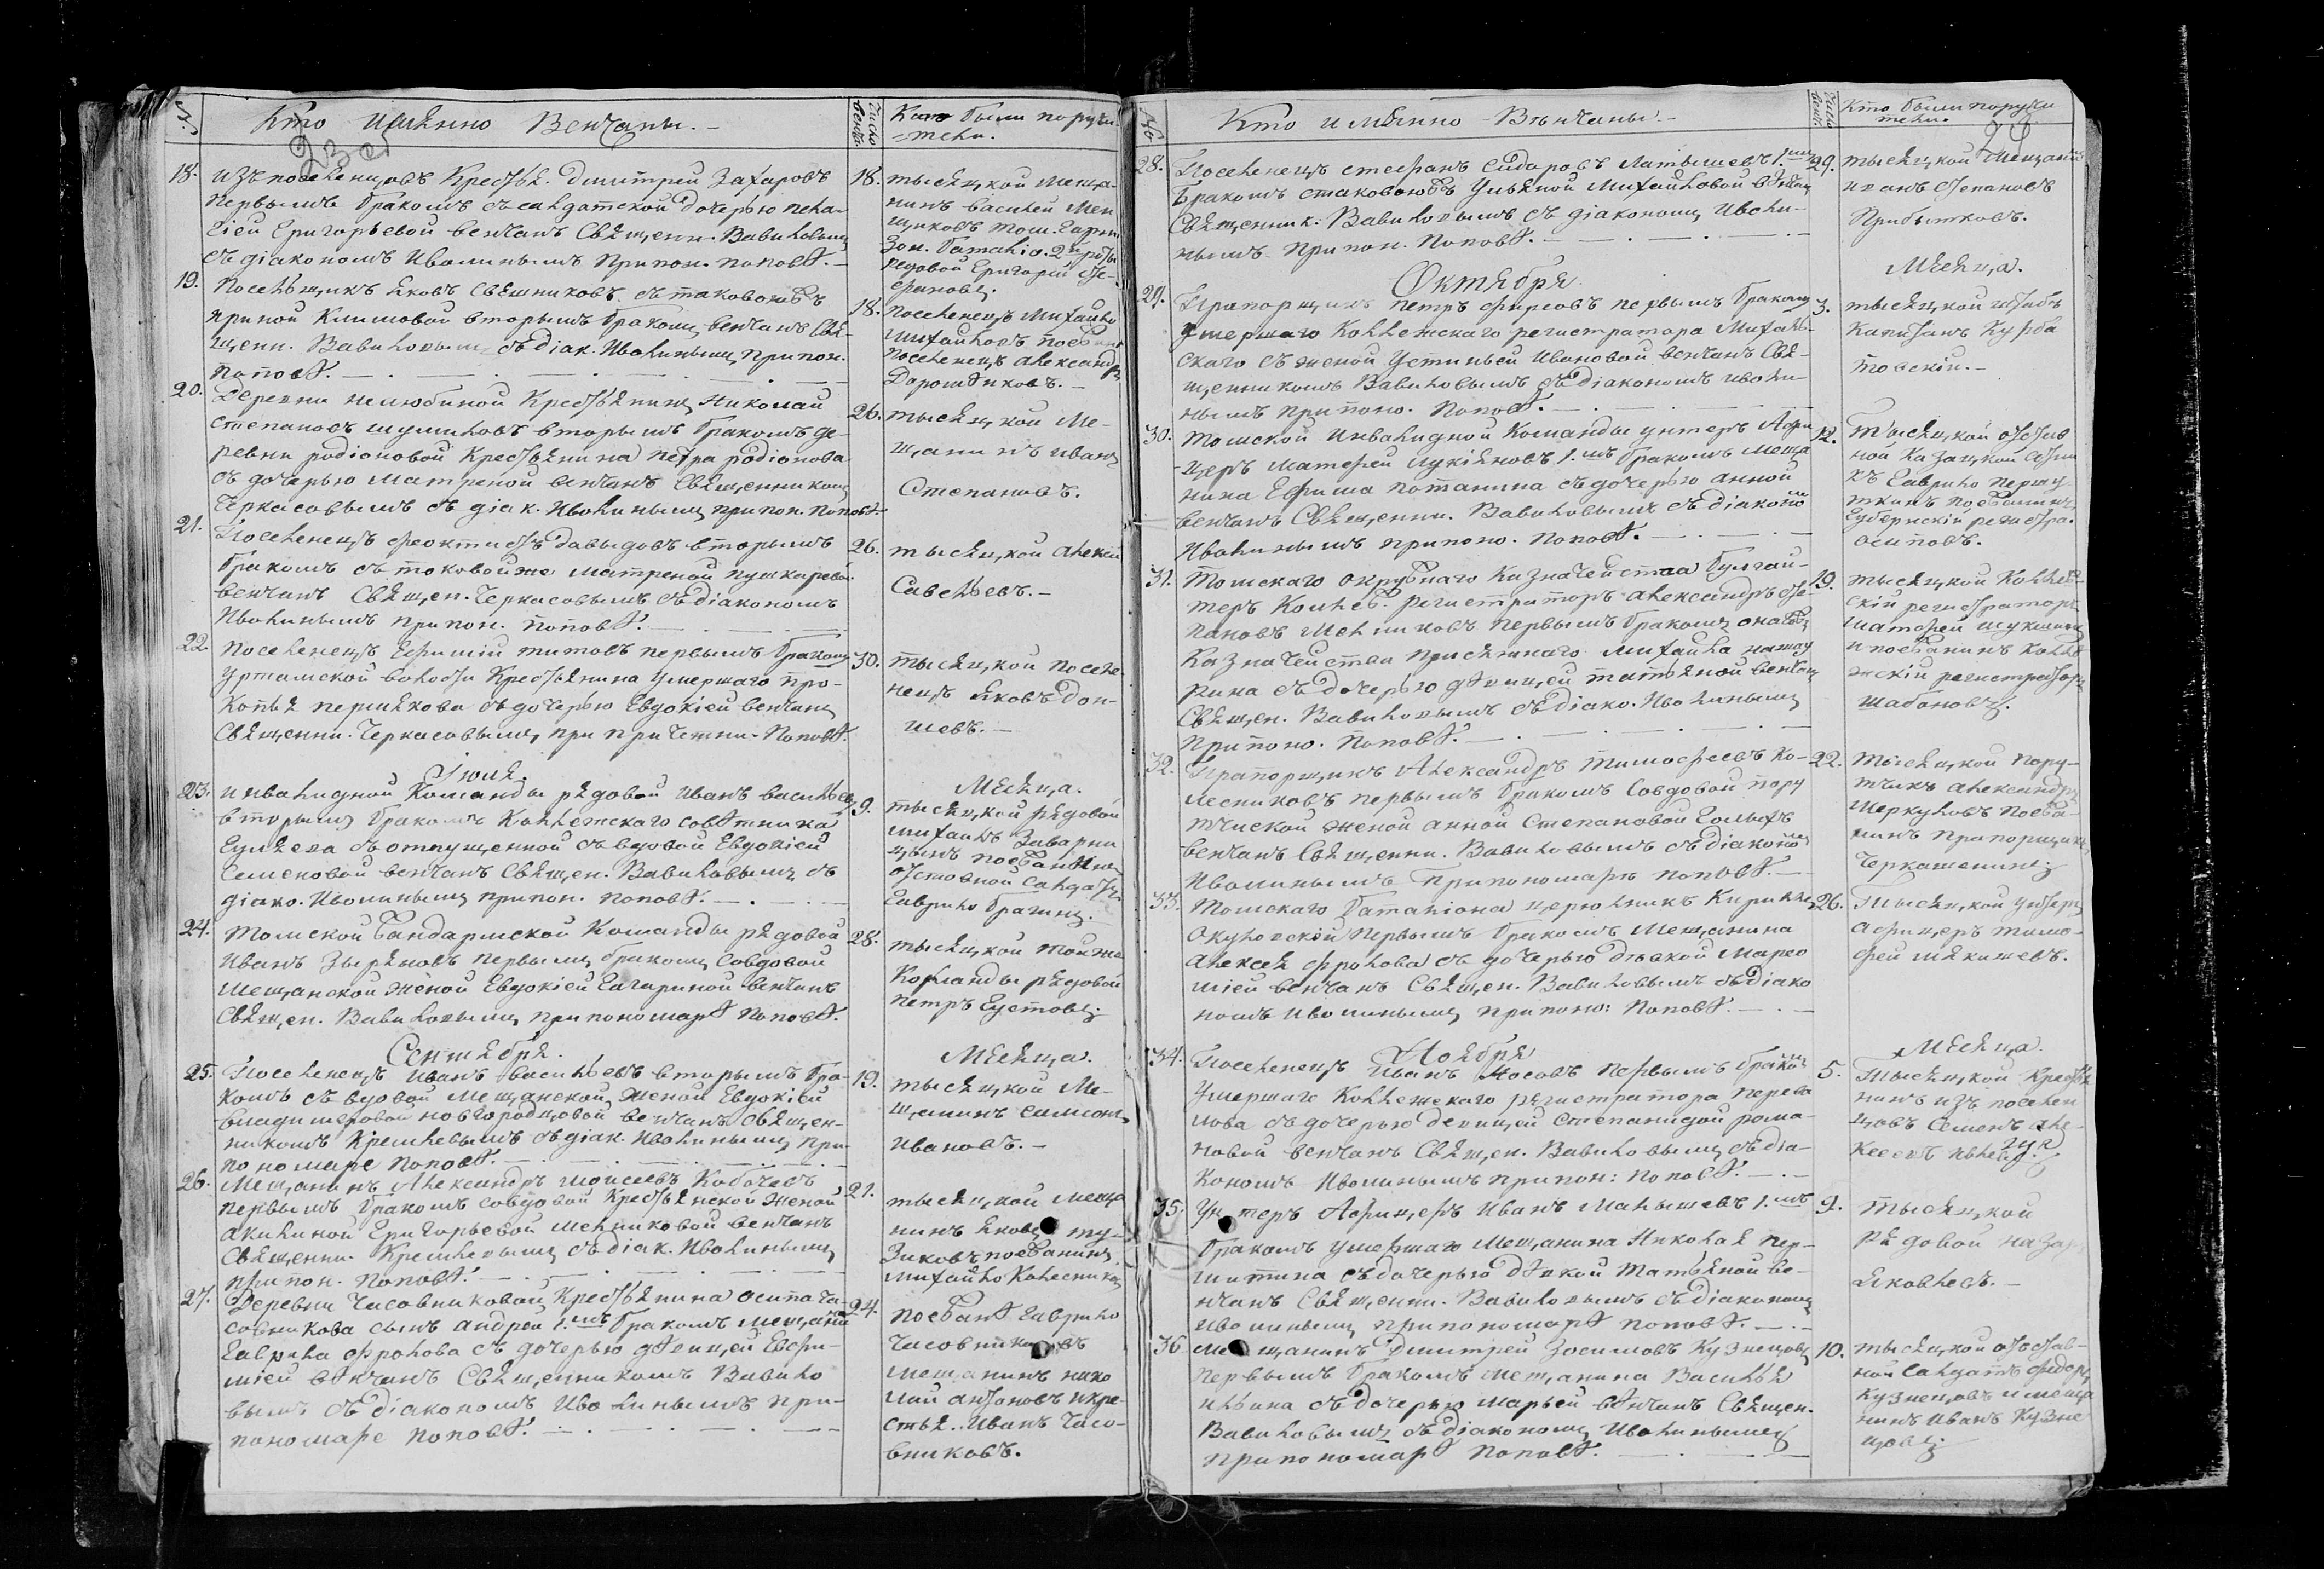 №
Кто имянно Венчаны.
Число венч.
Кто были поручи-
тели.
18.
изъ поселенцовъ Крестья. Дмитрей Захаровъ
первымъ бракомъ съ салдатской дочерью пела-
гіей Григорьевой венчанъ Священн. Вавиловымъ
съ діакономъ Иволинымъ при пон. поповѣ.
18.
тысяцкой меща-
нинъ василей Мен
щиковъ Том. Гарни
зон. баталіо. 2й роты
редовой Григорій
19.
Поселыцикъ яковъ Свешниковъ съ таковоюжъ
ириной Климовой вторымъ бракомъ венчанъ Свя-
щенн. Вавиловымъ съ діак. Иволинымъ при пон.
поповѣ.
18.
поселенецъ Михайло
Михайловъ
поселенецъ александръ
Дорошниковъ.
20.
Деревни нелюбиной Крестьянинъ Николай
степановъ шумиловъ вторымъ бракомъ де-
ревни родіоновой Крестьянина петра родіонова
съ дочерью матреной венчанъ Священникомъ
Черкасовымъ съ діак. Иволинымъ при пон. поповѣ
26.
тысяцкой Ме-
щанинъ иванъ
Степановъ.
21.
Поселенецъ феоктистъ давыдовъ вторымъ
бракомъ съ таковойже матреной пушкаревой
венчанъ Священ. Черкасовымъ съ діакономъ
Иволинымъ при пон. поповѣ.
26.
тысяцкой алексѣй
Савельевъ.
22.
Поселенецъ Ефимій титовъ первымъ бракомъ
Уртамской волости Крестьянина умершаго про-
копья пермякова съ дочерью Евдокіей венчанъ
Священн. Черкасовымъ, при причетни. Поповѣ.
30.
тысяцкой поселе
нецъ яковъ дон-
шевъ.
Іюля.
Месяца.
23.
инвалидной Команды рядовой иванъ васильевъ
вторымъ бракомъ Коллежскаго советника
Гуляева съ отпущенной съ вдовой Евдокіей
Семеновой венчанъ Священ. Вавиловымъ съ
діако. Иволинымъ при пон. поповѣ.
9.
тысяцкой рядовой
михаилъ Заварни
цынъ поезжанинъ
отставной Салдатъ
Гаврило брагинъ.
24.
Томской Жандармской Команды рядовой
иванъ Зыряновъ первымъ бракомъ совдовой
мещанской женой Евдокіей Гагариной венчанъ
Священ. Вавиловымъ при пономарѣ поповѣ.
28.
тысяцкой тойже
Команды рядовой
петръ Густовъ.
Сентября.
Месяца.
25.
Поселенецъ Иванъ васильевъ вторымъ бра-
комъ съ вдовой мещанской женой Евдокіей
владимеровой новгородцовой венчанъ Священ-
никомъ Кремлевымъ съ діак. Иволинымъ при
пономаре поповѣ.
19.
тысяцкой Ме-
щанинъ симеонъ
ивановъ.
26.
Мещанинъ Александръ моисеевъ Кобачевъ
первымъ бракомъ совдовой Крестьянской женой
акилиной Григорьевой мельниковой венчанъ
Священни. Кремлевымъ съ діак. Иволинымъ
при пон. поповѣ.
21.
тысяцкой меща
нинъ яковъ ту-
зиковъ поезжанинъ
михайло Колесниковъ
27.
Деревни Часовниковой Крестьянина осипа ча-
совникова сынъ андрей 1.мъ бракомъ мещани
Гаврила фролова съ дочерью девицей Евфи-
міей вѣнчанъ Священникомъ Вавило
вымъ съ діакономъ Иволинымъ при-
пономаре поповѣ.
24.
поезжанѣ Гаврило
Часовниковъ
мещанинъ нико
лай антоновъ и кре-
стья. Иванъ Часо-
вниковъ.
№
Кто имянно Вѣнчаны.
Число венч.
Кто были поручи
тели.
28.
Поселенецъ стефанъ Сидоровъ Латышевъ 1.мъ
бракомъ стаковоюжъ Ульяной Михайловой вѣнчанъ
Священник. Вавиловымъ съ діакономъ Иволи-
нымъ при пон. поповѣ.
29.
тысяцкой Мещанинъ
иванъ степановъ
Прибытковъ.
Октября
Месяца.
29.
Прапорщикъ петръ фирсовъ первымъ бракомъ
умершаго Коллежскаго регистратора Михалев-
скаго съ женой Устиньей Ивановой венчанъ Свя-
щенникомъ Вавиловымъ съ діакономъ иволи-
нымъ при поно. поповѣ.
3.
тысяцкой штабсъ
Капитанъ Курба
товскій.
30.
Томской Инвалидной Команды унтеръ Афи
церъ матфей лукіяновъ 1.мъ бракомъ меща
нина Ефима потанина съ дочерью анной
венчанъ Священни. Вавиловымъ съ діакономъ
Иволинымъ при поно. поповѣ.
12.
Тысяцкой отстав
ной Казацкой сотни
къ Гаврило першу
ткинъ поезжанинъ
Губернскій регистра.
осиповъ.
31.
Томскаго окружнаго Казначейства бухгал-
теръ Коллеж. регистраторъ александръ сте-
пановъ мельниковъ первымъ бракомъ онагожъ
Казначейства присяжнаго михайла
рина съ дочерью девицей татьяной венчанъ
Священ. Вавиловымъ съ діако. Иволинымъ
при поно. поповѣ.
19.
тысяцкой Коллеж-
скій регистраторъ
матфей шукшинъ
и поезжанинъ Колле
жскій регистраторъ
шабановъ.
32.
Прапорщикъ Александръ тимофеевъ Ко-
лесниковъ первымъ бракомъ совдовой пору
тчиской женой анной Степановой Гольфъ
венчанъ Священни. Вавиловымъ съ діакономъ
Иволинымъ при пономарѣ поповѣ.
22.
тысяцкой пору-
тчикъ александръ
Меркуловъ поезжа-
нинъ прапорщикъ
Черкашенинъ.
33.
Томскаго баталіона церюльникъ Кирилъ
Окуловскій первымъ бракомъ мещанина
алексея фролова съ дочерью дѣвкой Марео
міей венчанъ Священ. Вавиловымъ съ діако
номъ Иволинымъ при поно: поповѣ.
26.
Тысяцкой унтеръ
афицеръ тимо-
фей мякишевъ.
Ноября
Месяца.
34.
Поселенецъ Иванъ Носовъ первымъ бракомъ
умершаго Коллежскаго регистратора перева
лова съ дочерью девицей степанидой рома-
новой венчанъ Священ. Вавиловымъ съ діа-
кономъ Иволинымъ при пон: поповѣ.
5.
Тысяцкой Крестья
нинъ изъ поселен
цовъ Семенъ але-
ксеевъ
35.
Унтеръ Афицеръ Иванъ Малышевъ 1.мъ
бракомъ умершаго мещанина Николая пер-
митина съ дочерью дѣвкой татьяной ве-
нчанъ Священни. Вавиловымъ съ діакономъ
иволинымъ при пономарѣ поповѣ.
9.
тысяцкой
рядовой назаръ
яковлевъ.
36
мещанинъ Дмитрей Зосимовъ Кузнецовъ
первымъ бракомъ мещанина Василья
ильина съ дочерью марьей вѣнчанъ Священ.
Вавиловымъ съ діакономъ Иволинымъ
при пономарѣ поповѣ.
10.
тысяцкой отстав-
ной Салдатъ федоръ
Кузнецовъ и меща
нинъ иванъ Кузне
цовъ.